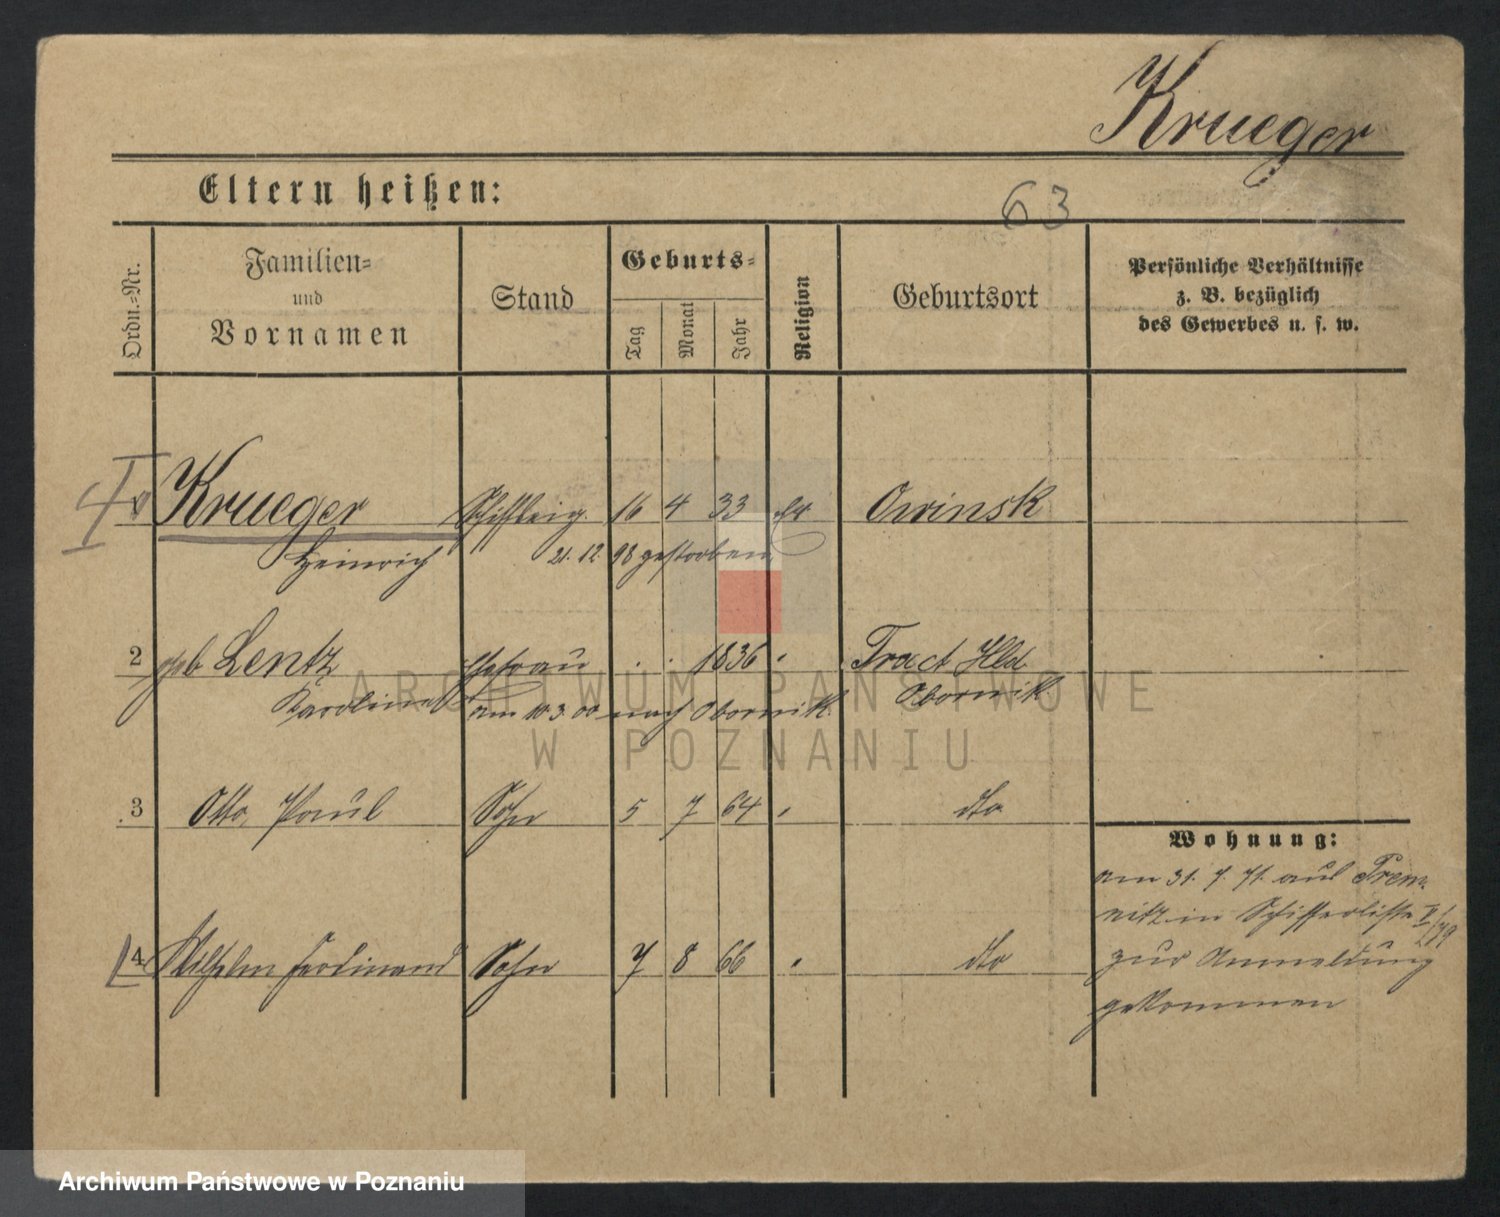 Krueger
Eltern heißen:
63
Ordn.-Nr.
Familien-
und
Vornamen
Stand
Geburts-
Tag
Monat
Jahr
Religion
Geburtsort
Persönliche Verhältnisse
z. B. bezüglich
des Gewerbes u. s. w.
Krueger 16 4 33 Owinsk
Heinrich 21. 12. 98 gestorben
2 geb Lentz Ehefrau . . 1836 " Tract Hld.
Karoline am 10 3. 00 nach Obornik Obornik
3 Otto, Paul Sohn 5 7 64 " dto
Wohnung:
am 31. 7. 71. aus Trem-
nitz in Schifferliste
4 Wilhelm Ferdinand Sohn 7 8 66 " dto
zur Anmeldung
gekommen
ARCHIWUM PAŃSTWOWE
W POZNANIU
Archiwum Państwowe w Poznaniu